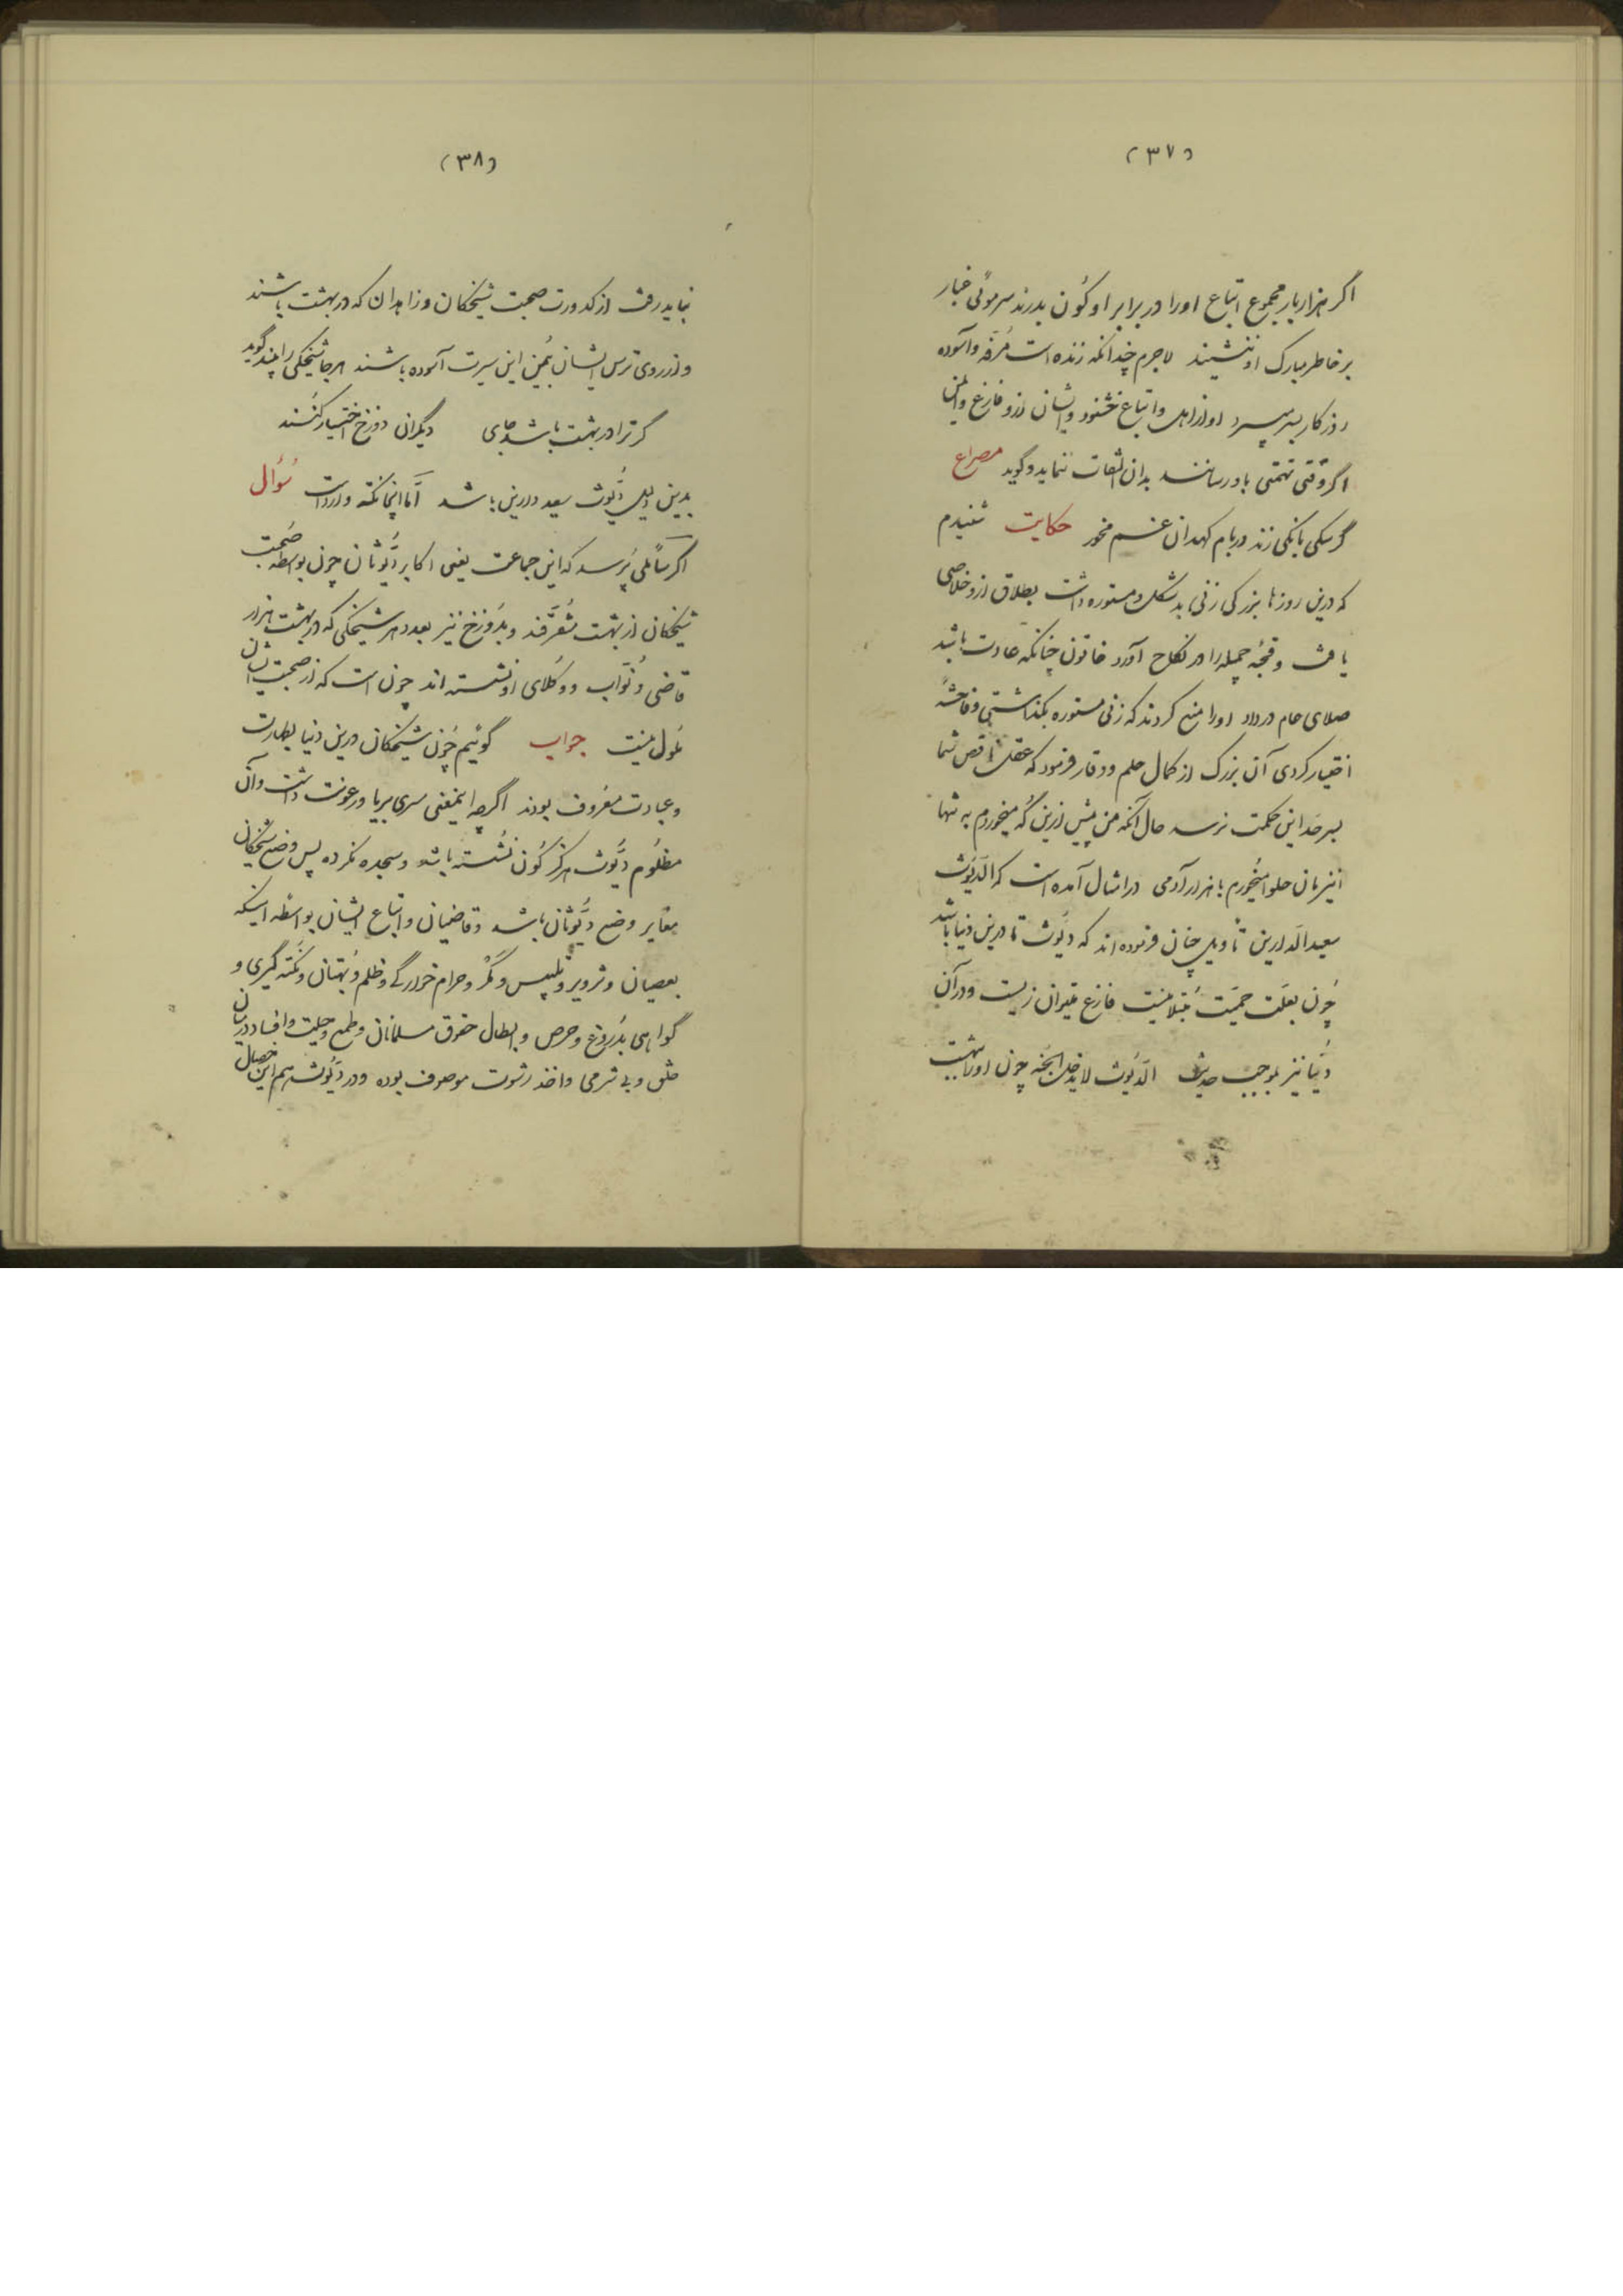 (۳۷)
اگر هزار بار مجموع اتباع او را در برابر او کُون بدرند سر موئی غبار
بر خاطر مبارک او ننشیند لاجرم چندانکه زنده است مُرفّه و آسوده
روزگار بسر میبرد او از اهل و اتباع خشنود و ایشان ازو فارغ و ایمن
اگر وقتی تهمتی باو رسانند بدان التفات ننماید و گوید مصراع
گر سگی بانگی زند در بام کهدان غم مخور حکایت شنیدم
که درین روزها بزرگی زنی بدشکل و مستوره داشت بطلاق ازو خلاصی
یافت و قحبهٔ جمیله را در نکاح آورد خاتون چنانکه عادت باشد
صلای عام در داد او را منع کردند که زنی مستوره بگذاشتی و فاحشهٔ
اختیار کردی آن بزرگ از کمال حلم و وقار فرمود که عقل ناقص شما
بسر حد این حکمت نرسد حال آنکه من پیش ازین گُه میخوردم به تنها
این زمان حلوا میخورم با هزار آدمی در امثال آمده است که الدَیُوث
سعید الدارین تأویل چنان فرموده اند که دیُوث تا درین دنیا باشد
چُون بعلّت حمیّت مُبتلا نیست فارغ میتوان زیست و در آن
دُنیا نیز بموجب حدیث الدیُوث لا یدخل الجنّه چون او را ببهشت
(۳۸)
نباید رفت از کدورت صحبت شیخکان و زاهدان که در بهشت باشند
و از روی ترس ایشان بیُمن این سیرت آسوده باشند هر جا شیخکی را بیند گوید
گر ترا در بهشت باشد جای دیگران دوزخ اختیار کُنند
بدین دلیل دیُّوث سعید دارین باشد امّا اینجا نکته وارد است سُوأل
اگر سائلی پُرسد که این جماعت یعنی اکابر دیُّوثان چون بواسطه صُحبت
شیخکان از بهشت متُقرّفند و بدُوزخ نیز بعدد هر شیخکی که در بهشت هزار
قاضی و نُوّاب و وکلای او نشسته اند چون است که از صحبت ایشان
مُلول نیست جواب گوئیم چُون شیخکان درین دنیا بطهارت
و عبادت معُروف بودند اگرچه اینمعنی سری بریا و رعونت داشت و آن
مظلُوم دیُّوث هرگز کُون نشُسته باشد و سجده نکرده پس وضع شیخکان
مغایر وضع دیُّوثان باشد و قاضیان و اتباع ایشان بواسطه اینکه
بعصیان و تزویر و تلبیس و مکُر و حرام خوارگی و ظلم و بُهتان و نکُته گیری و
گواهی بدُروغ و حرص و ابطال حقوق مسلمانان و طمع و حیلت و افساد در میان
خلق و بی شرمی و اخذ رشوت موصوف بوده و در دیُّوث هم این خصال